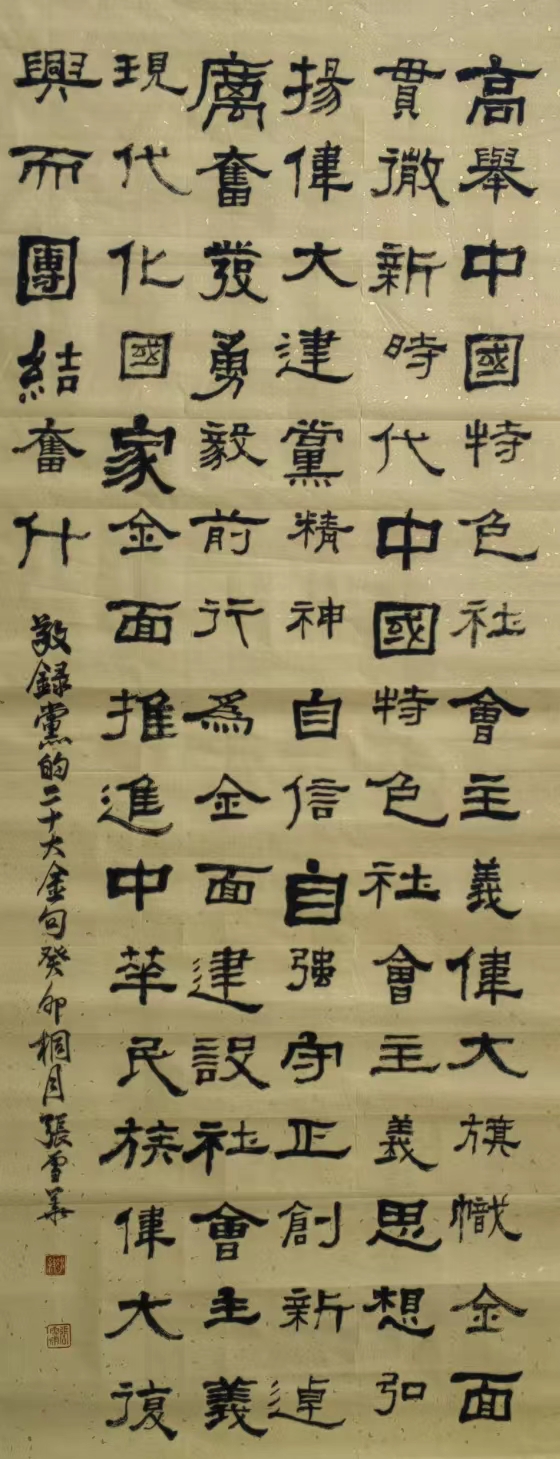 高舉中國特色社會主義偉大旗幟金面
貫徹新時代中國特色社會主義思想弘
揚偉大建黨精神自信自強守正創新逴
厲奮發勇毅前行為金面建設社會主義
現代化國家金面推進中華民族偉大復
興而團結奮斗
敬録黨的二十大金句癸卯桐月張雪華